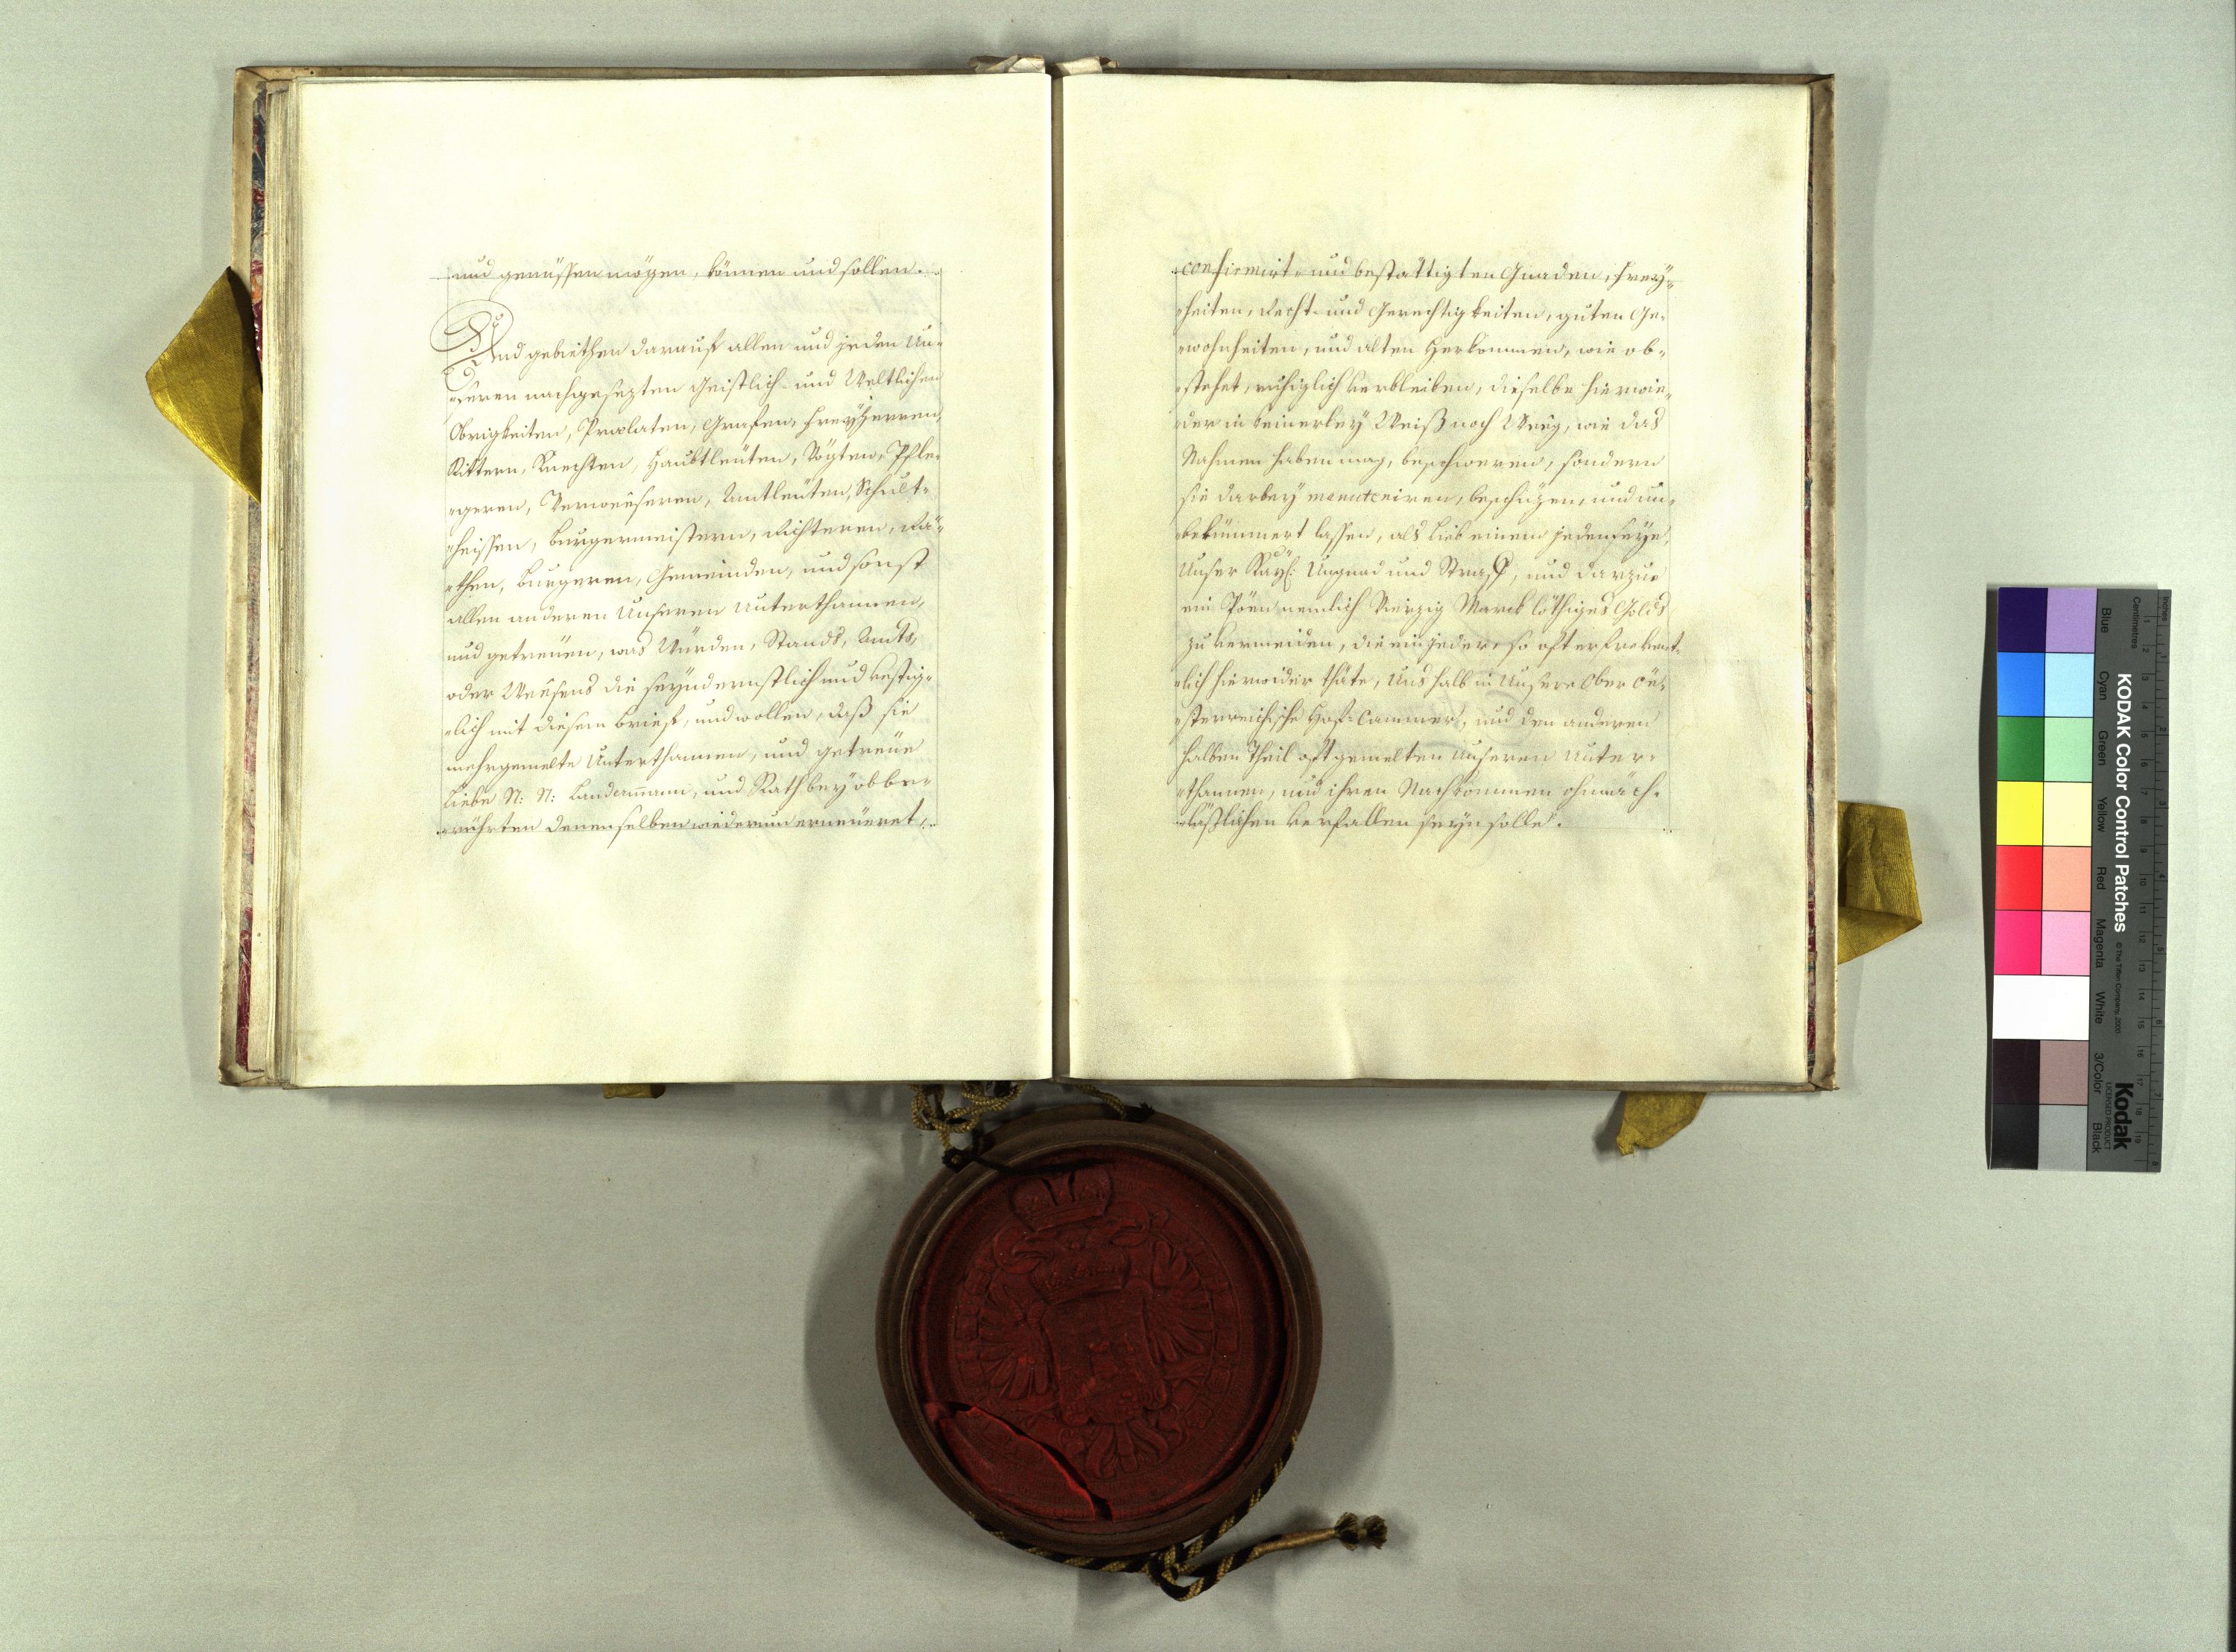 und genüssen mögen, können und sollen.
Und gebiethen darauf allen und jeden Un-
seren nachgesezten Geistlich- und Weltlichen
Obrigkeiten, Prælaten, Grafen, Freyherren,
Rittern, Knechten, Haubtleüten, Vögten, Pfle-
geren, Verweeseren, Amtleüten, Schult-
heissen, Burgermeistern, Richteren, Rä-
then, Burgeren, Gemeinden, und sonst
allen anderen Unseren Unterthannen,
und getreüen, was Würden, Stands, Amts,
oder Weesens die seynd ernstlich und vestig-
lich mit diesem Brief, und wollen, daß sie
mehrgemelte Unterthannen, und getreüe
Liebe N: N: Landam̄ann, und Rath bey obbe-
rührten denenselben wiederum erneüeret,
confirmirt- und bestättigten Gnaden, Frey-
heiten, Recht- und Gerechtigkeiten, guten Ge-
wohnheiten, und alten Herkommen, wie ob-
stehet, ruhiglich verbleiben, dieselbe hierwie-
der in keinerley Weiß noch Weeg, wie das
Nahmen haben mag, beschweren, sondern
sie darbey manuteniren, beschüzen, und un-
bekümmert lassen, als lieb einem jeden seye,
Unser Kayl: Ungnad und Straff, und darzue
ein Pöen nemlich Vierzig Marck löthiges Golds
zu vermeiden, die ein jeder, so oft er freventt-
lich hierwider thäte, Uns halb in Unsere Ober Öe-
sterreichische Hof-Cammer, und den anderen
halben Theil oft gemelten Unseren Unter-
thannen, und ihren Nachkommen ohnnach-
läßlichen verfallen seyn solle.
KODAK Color Control Patches
© The Tiffen Company, 2000
Kodak
LICENSED PRODUCT
Blue Cyan Green Yellow Red Magenta White 3/Color Black
Inches
Centimetres